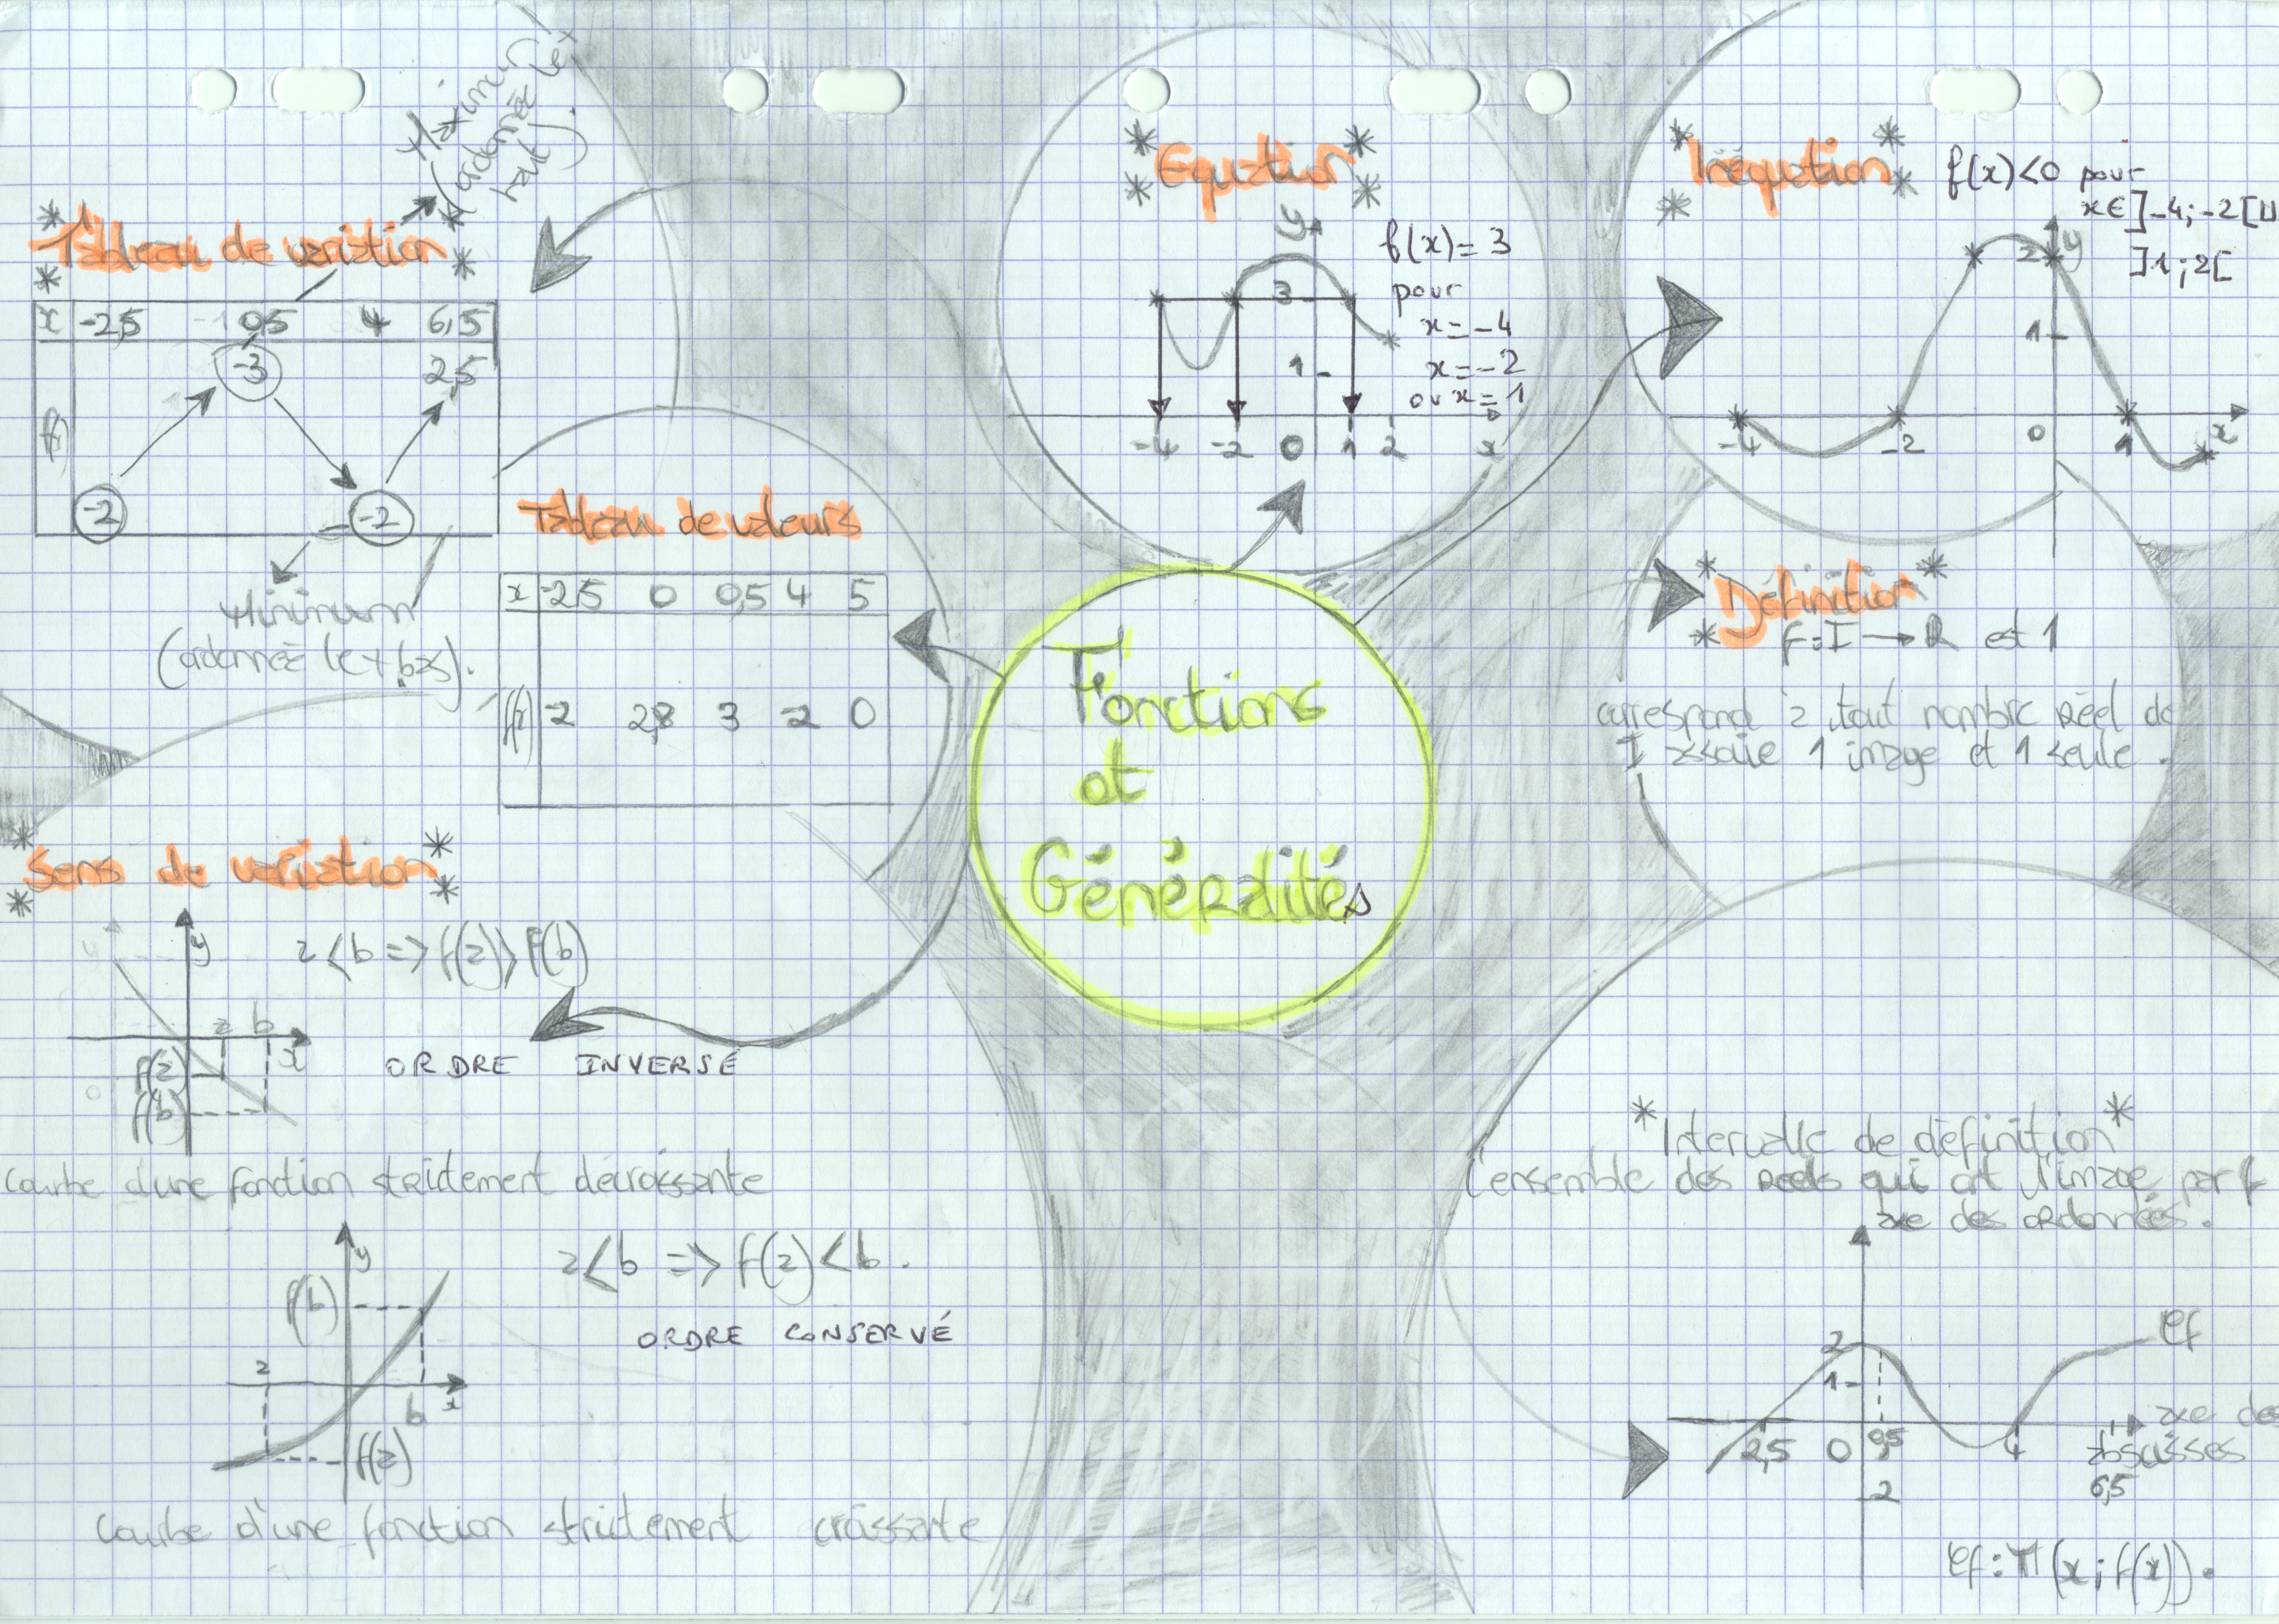 Fonctions
et
Généralités
Maximum
(ordonnée le +
haut).
Tableau de variation
x -2,5 0,5 4 6,5
-3 2,5
f(x)
-2 -2
Minimum
(ordonnée le + bas).
Tableau de valeurs
x -2,5 0 0,5 4 5
f(x) -2 2,8 3 -2 0
Equation
y
f(x)=3
pour
x=-4
x=-2
ou x=1
3
1
-4 -2 0 1 2 x
Inéquation
f(x)<0 pour
x∈]-4;-2[U
]1;2[
2 y
1
-4 -2 0 1 x
Définition
f:I→R est 1
correspond à tout nombre réel de
I associe 1 image et 1 seule.
Sens de variation
y
a<b => f(a)>f(b)
a b
x
f(a)
f(b)
ORDRE INVERSÉ
Courbe d'une fonction strictement décroissante
y
f(b)
a<b => f(a)<b.
ORDRE CONSERVÉ
a
b x
f(a)
Courbe d'une fonction strictement croissante
Intervalle de définition
l'ensemble des réels qui ont l'image par f
axe des ordonnées.
2
1
Cf
axe des
abscisses
2,5 0 0,5 4 6,5
-2
Cf:M(x;f(x)).